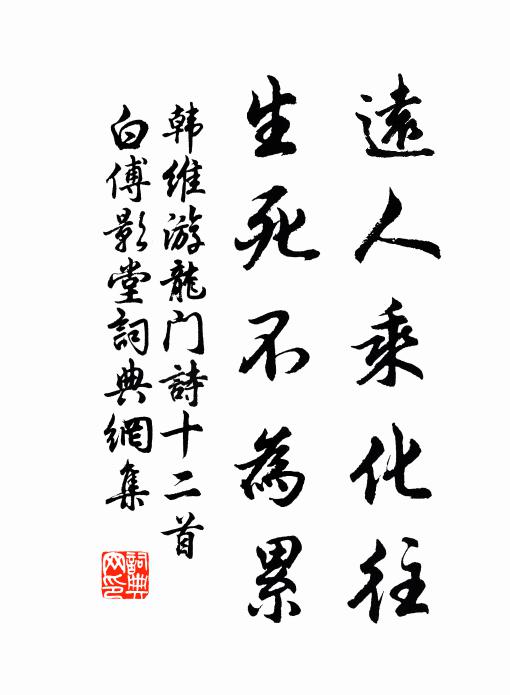 遠人乘化往
生死不為累
韩維游龍门詩十二首
白傅影堂詞典網集
詞典网印